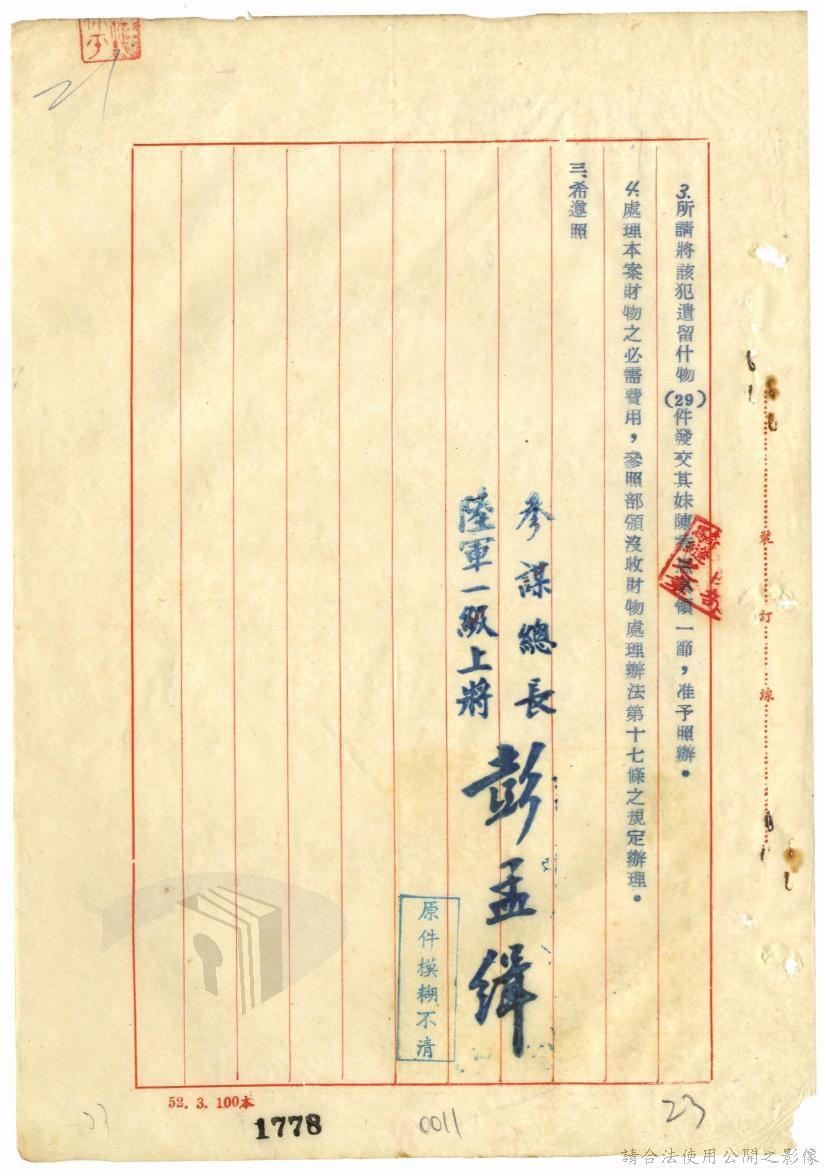 3.所請將該犯遺留什物(29)件發交其妹陳領一節，准予照辦。
4.處理本案財物之必需費用，參照部頒沒收財物處理辦法第十七條之規定辦理。
三、希遵照
參謀總長
陸軍一級上將
彭孟緝
原件模糊不清
裝訂線
52. 3. 100本
1778
0011
23
請合法使用公開之影像